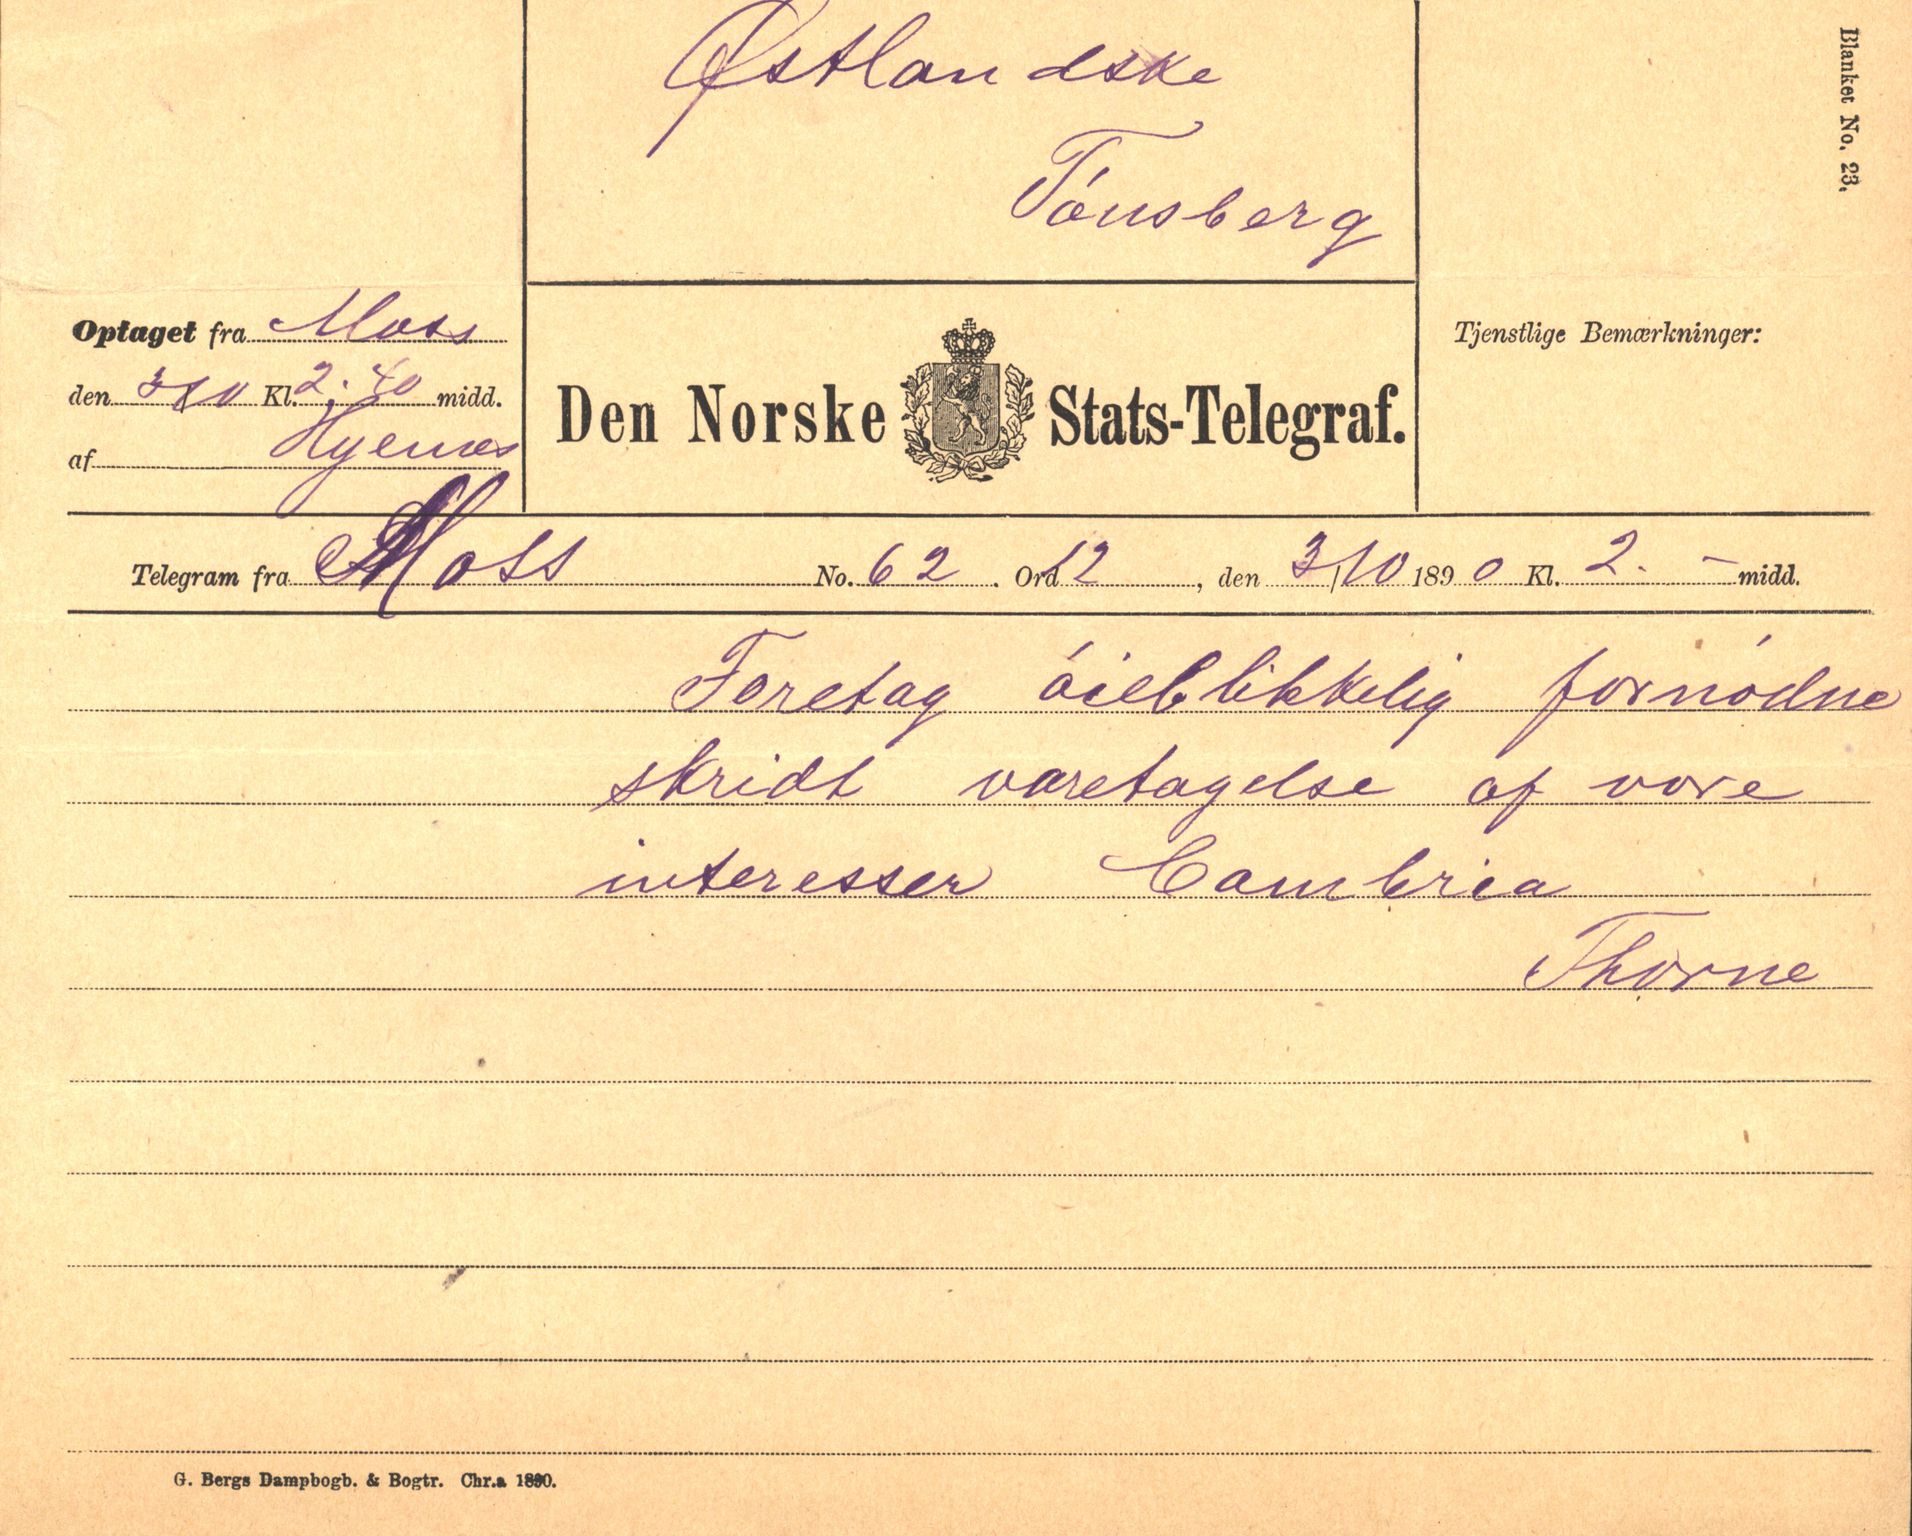 Østlandske
Tónsberg
Blanket No. 23.
Optaget fra Moss
den 3/10 Kl. 2.40 midd.
af Hyenæs
Den Norske Stats-Telegraf.
Tjenstlige Bemærkninger:
Telegram fra Moss No. 62. Ord 12, den 3/10 1890 Kl. 2. – midd.
Foretag óieblikkelig fornódne
skridt varetagelse af vore
interesser Cambria
Thorne
G. Bergs Dampbogb. & Bogtr. Chr.a 1890.